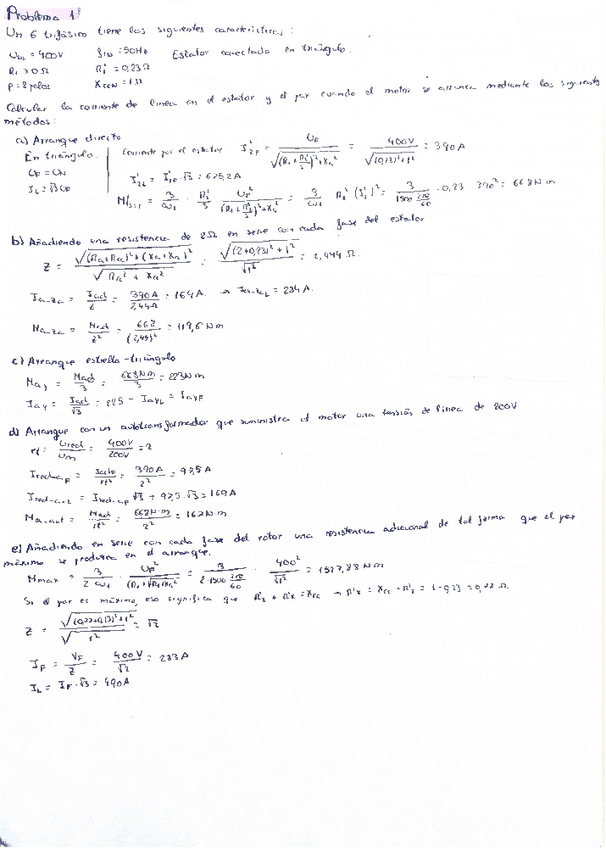 Problema 1
Un G trifásico tiene las siguientes características:
U₁L = 400V f₁N = 50Hz Estator conectado en triángulo.
R₁ > 0Ω R₂' = 0,23Ω
P = 2 polos Xccn = 1Ω
Calcular la corriente de línea en el estator y el par cuando el motor se arranca mediante los siguientes
métodos:
a) Arranque directo
En triángulo. Corriente por el estator I'₂F = UF / √((R₁ + R₂'/s)² + Xcc²) = 400V / √(0,23² + 1²) = 390A
UF = UN
IL = √3 UF I'₂L = I'₂F · √3 = 675,2A
M|s=1 = 3/ω₁ · R₂'/s · UF² / ((R₁ + R₂'/s)² + Xcc²) = 3/ω₁ R₂' (I₂')² = 3 / (1500 2π/60) · 0,23 · 390² = 668 Nm
b) Añadiendo una resistencia de 2Ω en serie con cada fase del estator
Z = √((Rcc + Ra)² + (Xcc + Xa)²) / √(Rcc² + Xcc²) = √((2+0,23)² + 1²) / √1² = 2,444 Ω.
Ia-za = Iad / Z = 390A / 2,44 = 164A. → Ia-zaL = 284A.
Ma-za = Mad / Z² = 668 / (2,44)² = 119,6 Nm
c) Arranque estrella-triángulo
May = Mad / 3 = 668Nm / 3 = 223Nm
Iay = Iad / √3 = 225 - IayL = IayF
d) Arranque con un autotransformador que suministra al motor una tensión de línea de 200V
rt = Ured / Um = 400V / 200V = 2
Ired-aF = IadF / rt² = 390A / 2² = 97,5A
Ired-aut = Ired-aF √3 = 97,5 · √3 = 169A
Ma-aut = Mad / rt² = 668N·m / 2² = 167Nm
e) Añadiendo en serie con cada fase del rotor una resistencia adicional de tal forma que el par
máximo se produzca en el arranque.
Mmax = 3 / 2ω₁ · UF² / (R₁ + √(R₁² + Xcc²)) = 3 / (2·1500 2π/60) · 400² / √1² = 1527,88 Nm
Si el par es máximo, eso significa que R'₂ + R'x = Xcc → R'x = Xcc - R'₂ = 1 - 0,23 = 0,77 Ω.
Z = √((0,77+0,23)² + 1²) / √1² = √2
IF = VF / Z = 400V / √2 = 283A
IL = IF · √3 = 490A